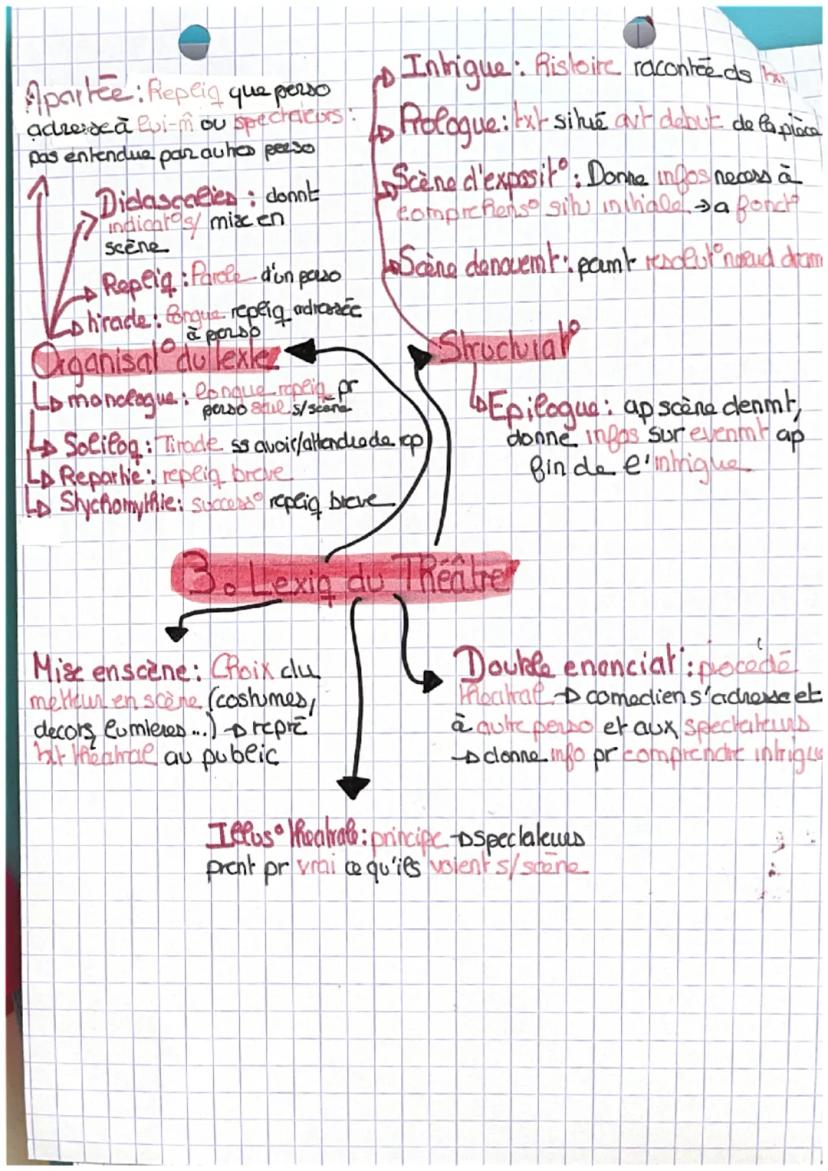 Apartée : Repliq que perso
adresse à lui-m̂ ou spectateurs :
pas entendue par autres perso
Didascalies : donnt
indicat°s/ mise en
scène
Repliq : Parole d'un perso
tirade : longue repliq adressée
à perso
Organisat° du texte
monologue : longue repliq pr
perso seul s/scène
Soliloq : Tirade ss avoir/attendre de rep
Repartie : repliq breve
Stychomythie : success° repliq breve
Intrigue : histoire racontée ds txt
Prologue : txt situé avt debut de la pièce
Scène d'exposit° : Donne infos necess à
comprehens° situ initiale → a fonct°
Scène denouemt : peamt resolut° nœud dram
Structurat°
Epilogue : ap scène denmt,
donne infos sur evenmt ap
fin de l'intrigue
3. Lexiq du Théâtre
Mise en scène : Choix du
metteur en scène (costumes,
decors, lumieres...) → repré
txt théatral au public
Double enonciat° : procédé
théatral → comedien s'adresse et
à autre perso et aux spectateurs
→ donne info pr comprendre intrigue
Illus° théatrale : principe → spectateurs
prent pr vrai ce qu'ils voient s/scène